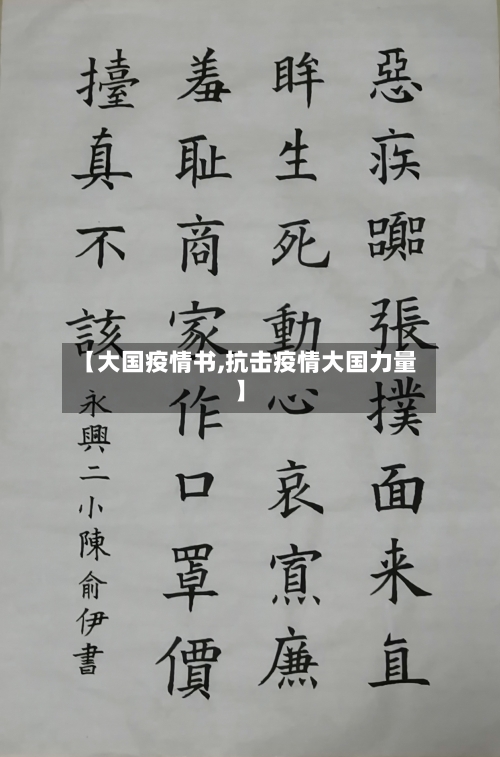 惡疾張撲面来直
眸生死動心哀寡廉
羞耻商家作口罩價
擡真不該
永興二小陳俞伊書
【大国疫情书,抗击疫情大国力量
】